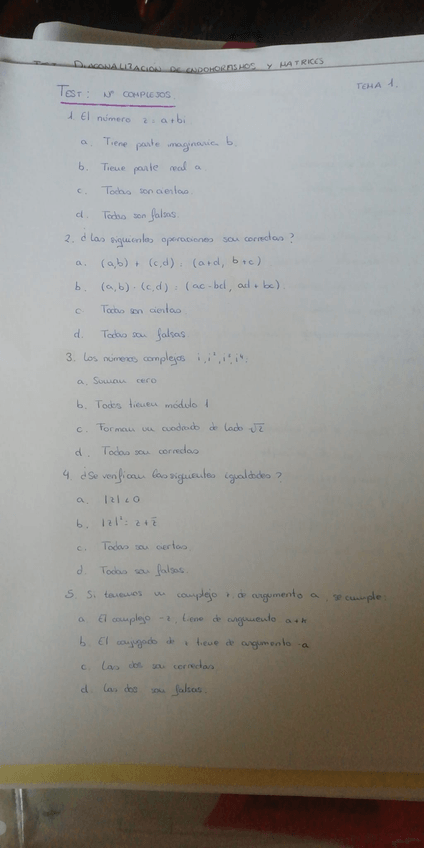 DIAGONALIZACIÓN DE ENDOMORFISMOS Y MATRICES
TEST: Nº COMPLEJOS. TEMA 1.
1. El número z = a+bi
a. Tiene parte imaginaria b.
b. Tiene parte real a
c. Todas son ciertas.
d. Todas son falsas.
2. ¿Las siguientes operaciones son correctas?
a. (a,b) + (c,d) = (a+d, b+c)
b. (a,b) · (c,d) = (ac-bd, ad+bc).
c. Todas son ciertas.
d. Todas son falsas.
3. Los números complejos i, i², i³, i⁴:
a. Suman cero
b. Todos tienen módulo 1
c. Forman un cuadrado de lado √2
d. Todas son correctas
4. ¿Se verifican las siguientes igualdades?
a. |z| < 0
b. |z|² = z+z̄
c. Todas son ciertas.
d. Todas son falsas.
5. Si tenemos un complejo z de argumento a, se cumple:
a. El complejo -z, tiene de argumento a+π
b. El conjugado de z tiene de argumento -a
c. Las dos son correctas.
d. Las dos son falsas.